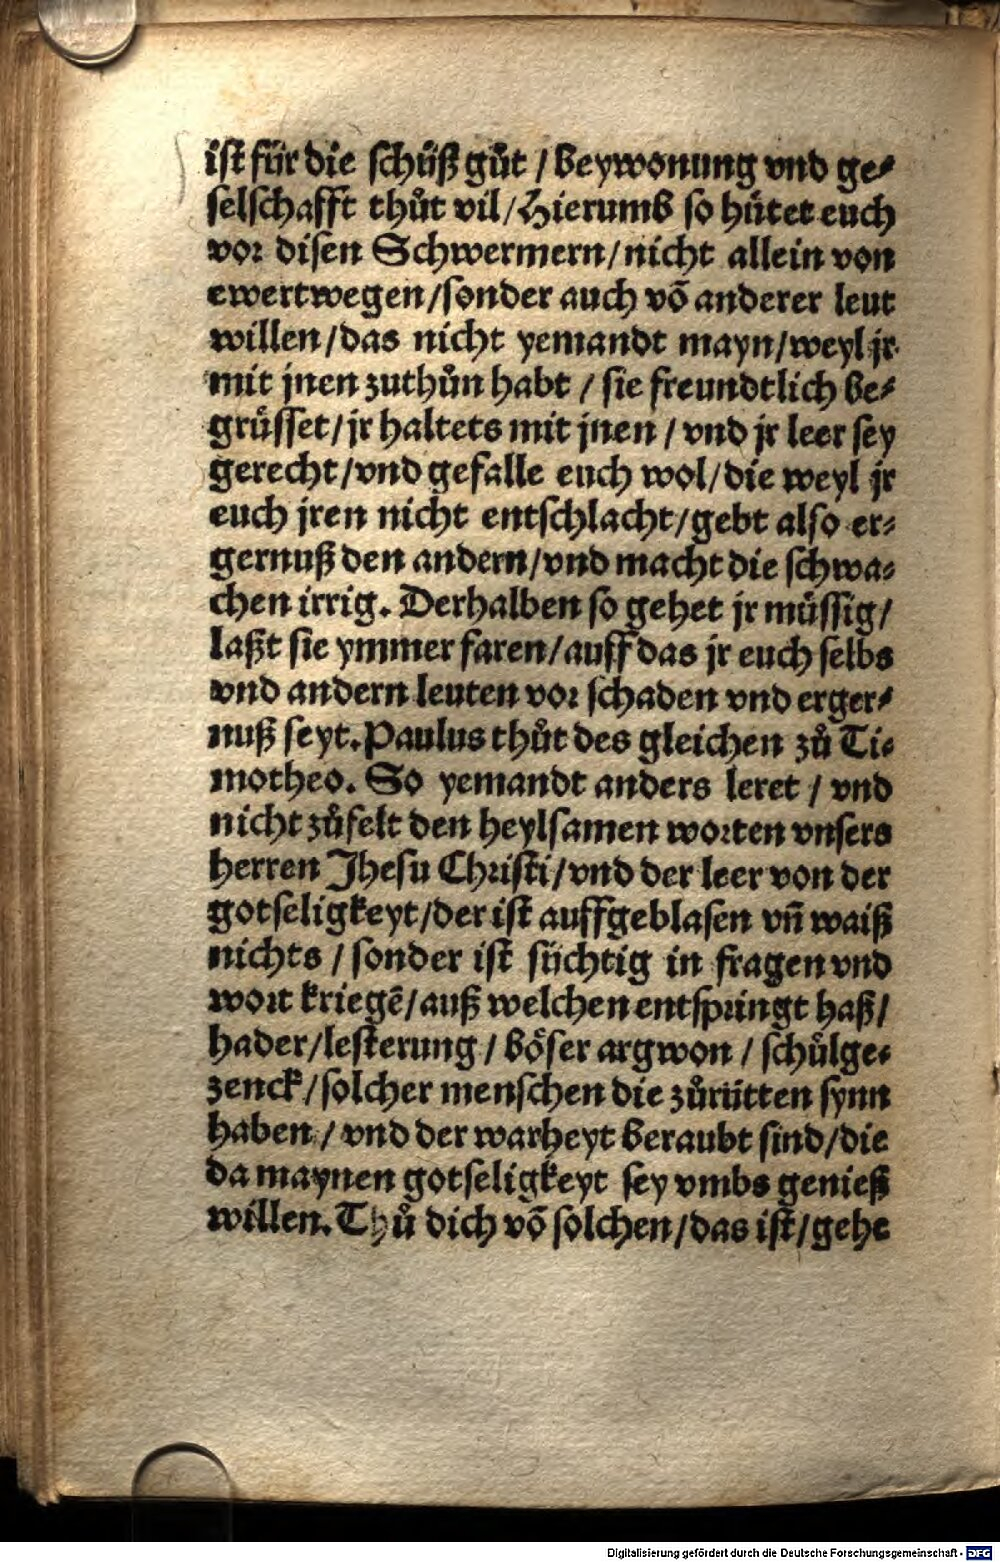 ist für die schüß gůt / beywonung vnd ge⸗
selschafft thůt vil / Hierumb so hütet euch
vor disen Schwermern / nicht allein von
ewertwegen / sonder auch võ anderer leut
willen / das nicht yemandt mayn / weyl jr
mit jnen zuthůn habt / sie freundtlich be⸗
grüsset / jr haltets mit jnen / vnd jr leer sey
gerecht / vnd gefalle euch wol / die weyl jr
euch jren nicht entschlacht / gebt also er⸗
gernuß den andern / vnd macht die schwa⸗
chen irrig. Derhalben so gehet jr müssig /
laßt sie ymmer faren / auff das jr euch selbs
vnd andern leuten vor schaden vnd erger⸗
nuß seyt. Paulus thůt des gleichen zů Ti⸗
motheo. So yemandt anders leret / vnd
nicht zůfelt den heylsamen worten vnsers
herren Jhesu Christi / vnd der leer von der
gotseligkeyt / der ist auffgeblasen vñ waiß
nichts / sonder ist süchtig in fragen vnd
wort kriegẽ / auß welchen entspringt haß /
hader / lesterung / böser argwon / schůlge⸗
zenck / solcher menschen die zůrütten synn
haben / vnd der warheyt beraubt sind / die
da maynen gotseligkeyt sey vmbs genieß
willen. Thů dich võ solchen / das ist / gehe
Digitalisierung gefördert durch die Deutsche Forschungsgemeinschaft - DFG